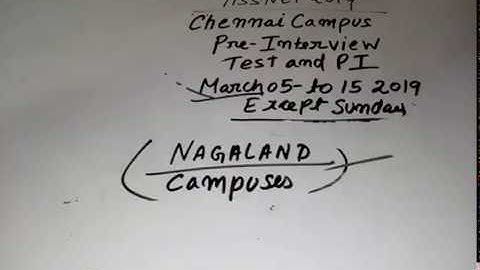 Chennai Campus
Pre-Interview
Test and PI
March 05- to 15 2019
Except Sunday
(NAGALAND
Campuses)